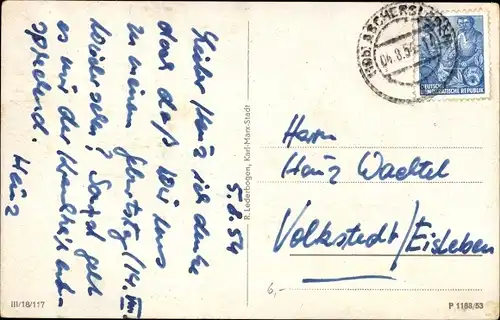 5.8.54
Lieber Heinz ich denke
doch daß wir uns
zu meinem Geburtstag (14. VIII.)
wiedersehen? Sonst geht
es mir der Krankheit ent-
sprechend.
Heinz
R. Lederbogen, Karl-Marx-Stadt
ASCHERSLEBEN
04.8.54
DEUTSCHE
DEMOKRATISCHE REPUBLIK
5
Herrn
Heinz Wachtel
Volkstedt/Eisleben
6,-
III/18/117
P 1188/53